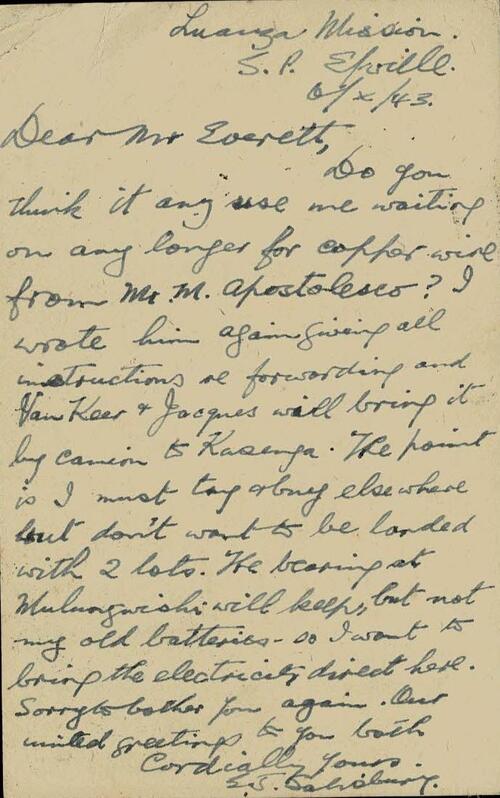 Luanza Mission.
S.P. E/ville.
6/X/43.
Dear Mr Everett,
Do you
think it any use me waiting
on any longer for copper wire
from Mr. M. Apostolesco? I
wrote him again giving all
instructions re forwarding and
Van Keer & Jacques will bring it
by camion to Kasenga. The point
is I must try & buy elsewhere
but don't want to be landed
with 2 lots. The bearing at
Mulungwishi will keep, but not
my old batteries - so I want to
bring the electricity direct here.
Sorry to bother you again. Our
united greetings to you both
Cordially yours.
Salisbury.